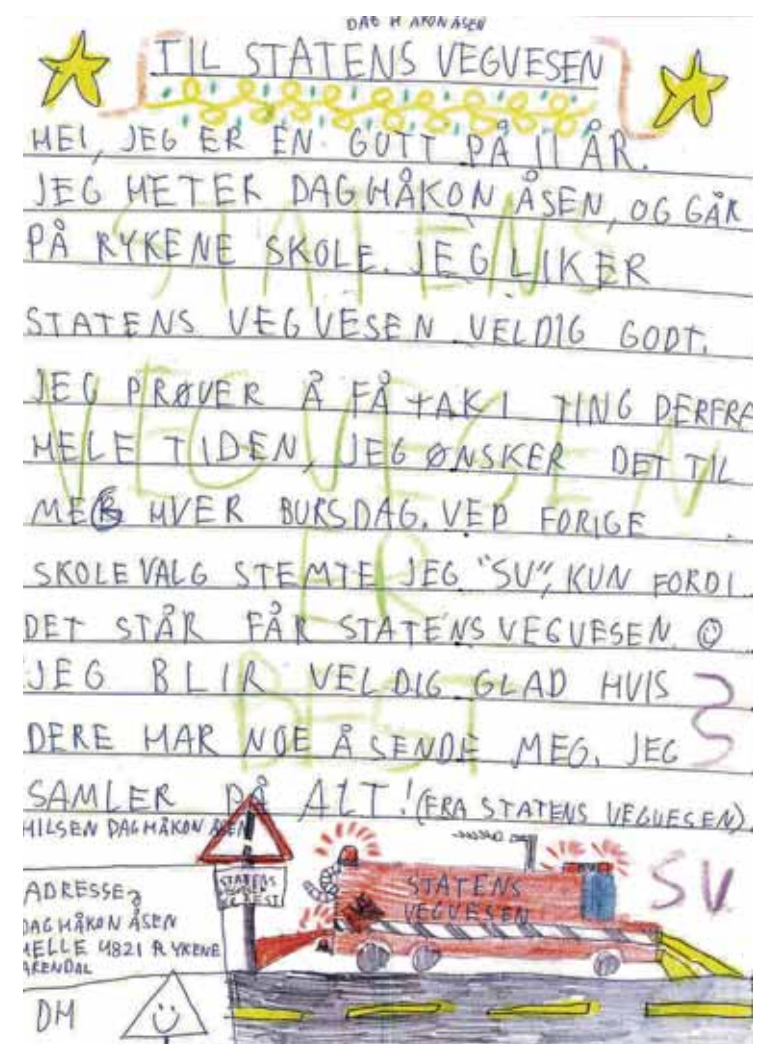 DAG HÅKON ÅSEN
TIL STATENS VEGVESEN
HEI, JEG ER EN GUTT PÅ 11 ÅR.
JEG HETER DAG HÅKON ÅSEN, OG GÅR
PÅ RYKENE SKOLE. JEG LIKER
STATENS VEGVESEN VELDIG GODT.
JEG PRØVER Å FÅ TAK I TING DERFRA
HELE TIDEN, JEG ØNSKER DET TIL
MEG HVER BURSDAG. VED FORIGE
SKOLEVALG STEMTE JEG "SV", KUN FORDI
DET STÅR FÅR STATENS VEGVESEN. ☺
JEG BLIR VELDIG GLAD HVIS
DERE HAR NOE Å SENDE MEG. JEG
SAMLER PÅ ALT! (FRA STATENS VEGVESEN).
HILSEN DAG HÅKON ÅSEN
STATENS
VEGVESEN
ER
BEST
ADRESSE:
DAG HÅKON ÅSEN
HELLE 4821 RYKENE
ARENDAL
DH
STATENS
ER BEST
STATENS
VEGVESEN
SV